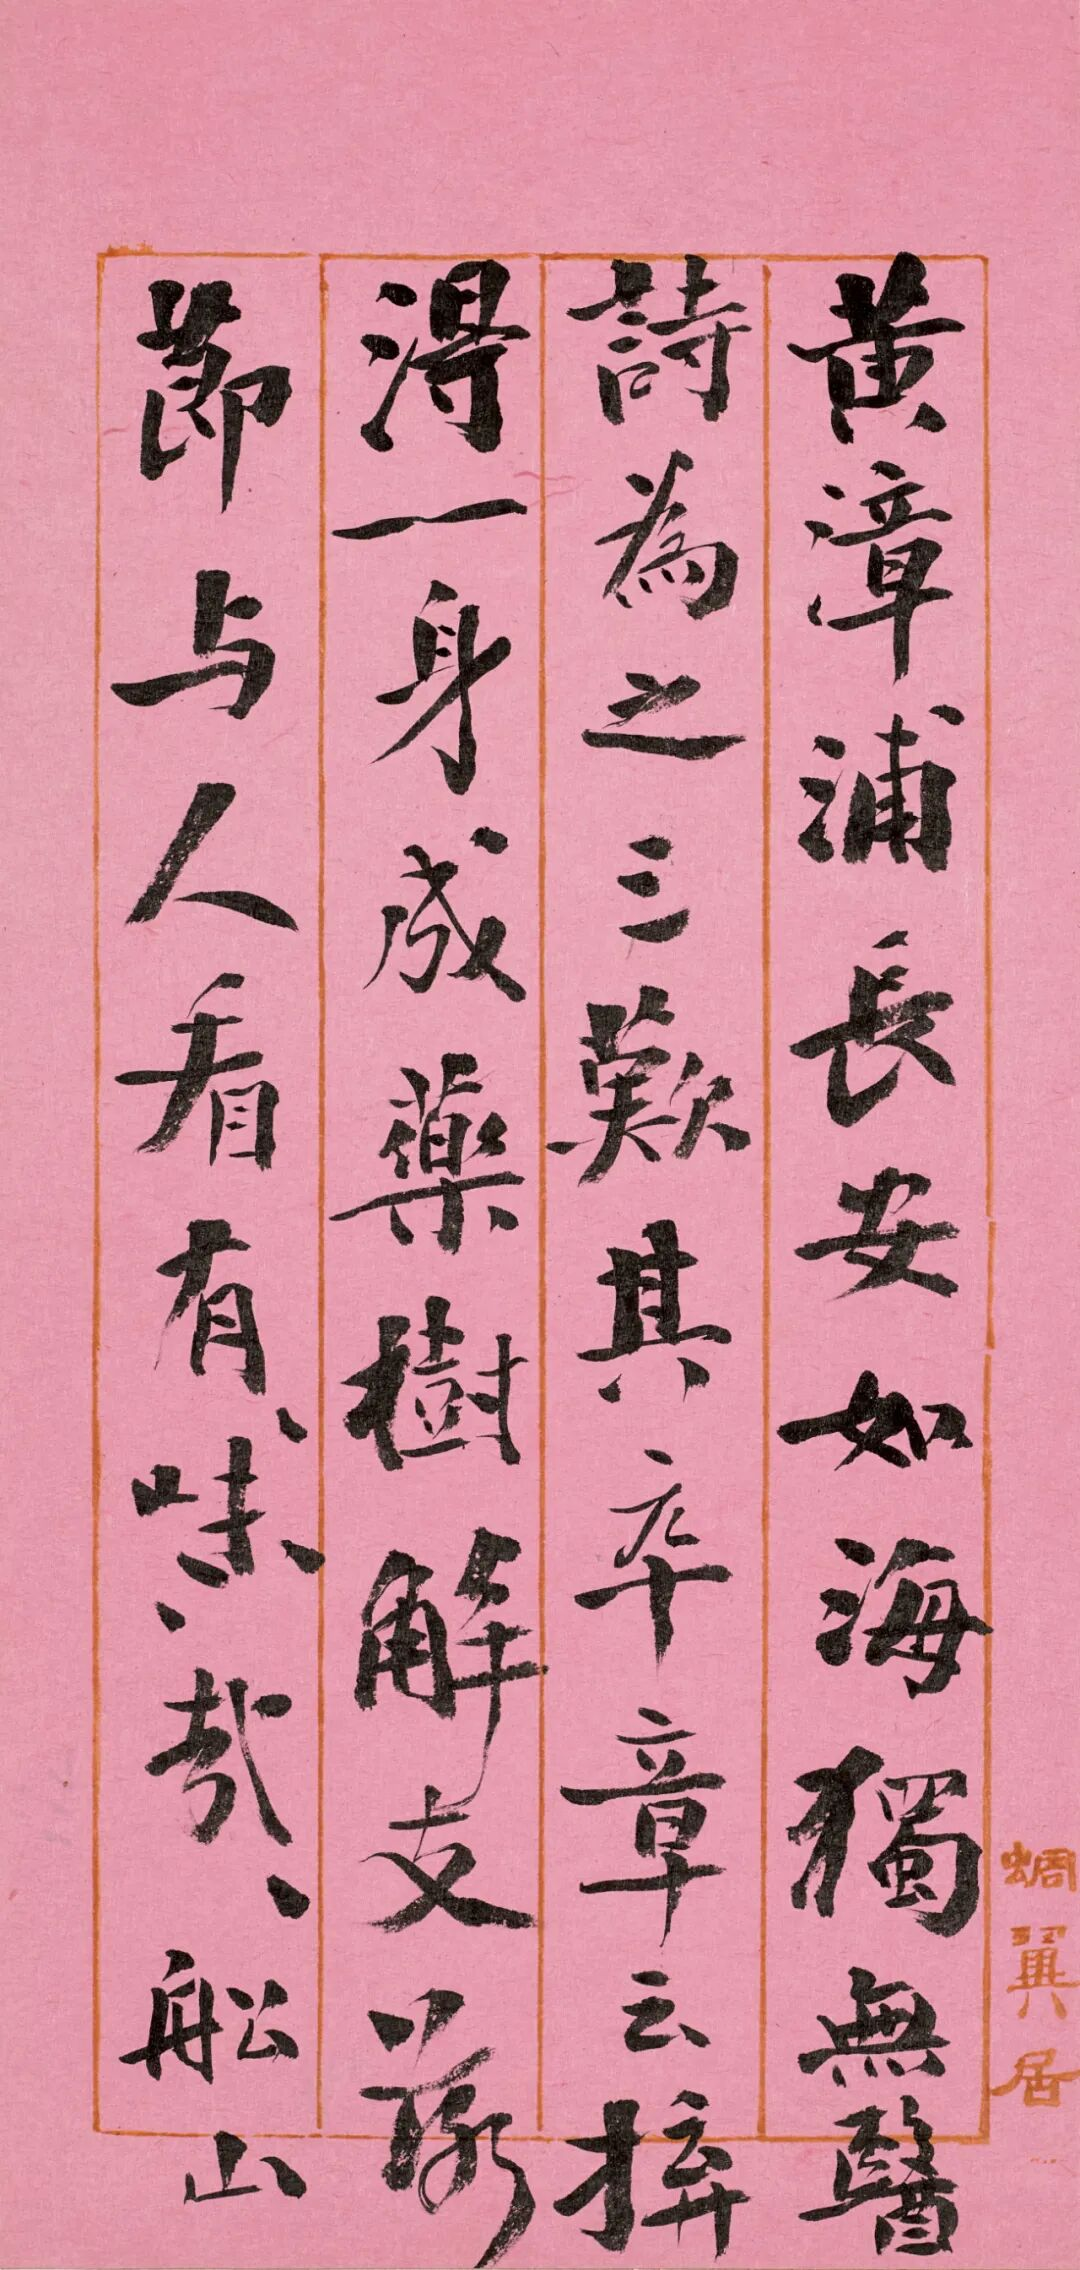 黄漳浦長安如海獨無醫
詩為之三歎其卒章云拚
淂一身成藥樹解支落
節与人看有味、哉、舩山
蜩翼居